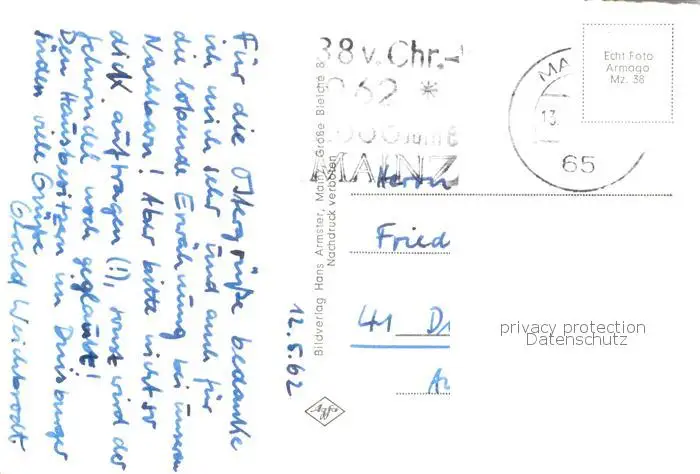 Für die Ostergrüße bedanke
ich mich sehr und auch für
die lobende Erwähnung bei unseren
Nachbarn! Aber bitte nicht so
dick auftragen (!), sonst wird der
Schwindel noch geglaubt!
Den Hausbesitzern im Duisburger
Süden viele Grüße
12.5.62
Bildverlag Hans Armster, Mainz, Große Bleiche
Nachdruck verboten
Agfa
38 v. Chr.-
1962 *
2000 Jahre
MAINZ
MA
13.
65
Echt Foto
Armago
Mz. 38
Herrn
Fried
41 D
privacy protection
Datenschutz